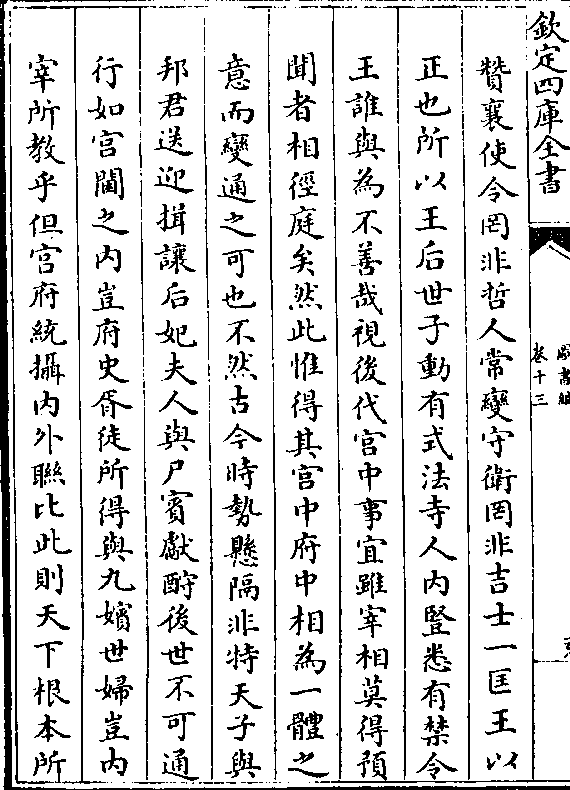 欽定四庫全書
卷十三
贊襄使令罔非哲人常變守衛罔非吉士一匡王以
正也所以王后世子動有式法寺人内豎悉有禁令
王誰與為不善哉視後代宫中事宜雖宰相莫得預
聞者相徑庭矣然此惟得其宫中府中相為一體之
意而變通之可也不然古今時勢懸隔非特天子與
邦君送迎揖讓后妃夫人與尸賓獻酧後世不可通
行如宫闈之内豈府史胥徒所得與九嬪世婦豈内
宰所教乎但宫府統攝内外聯比此則天下根本所